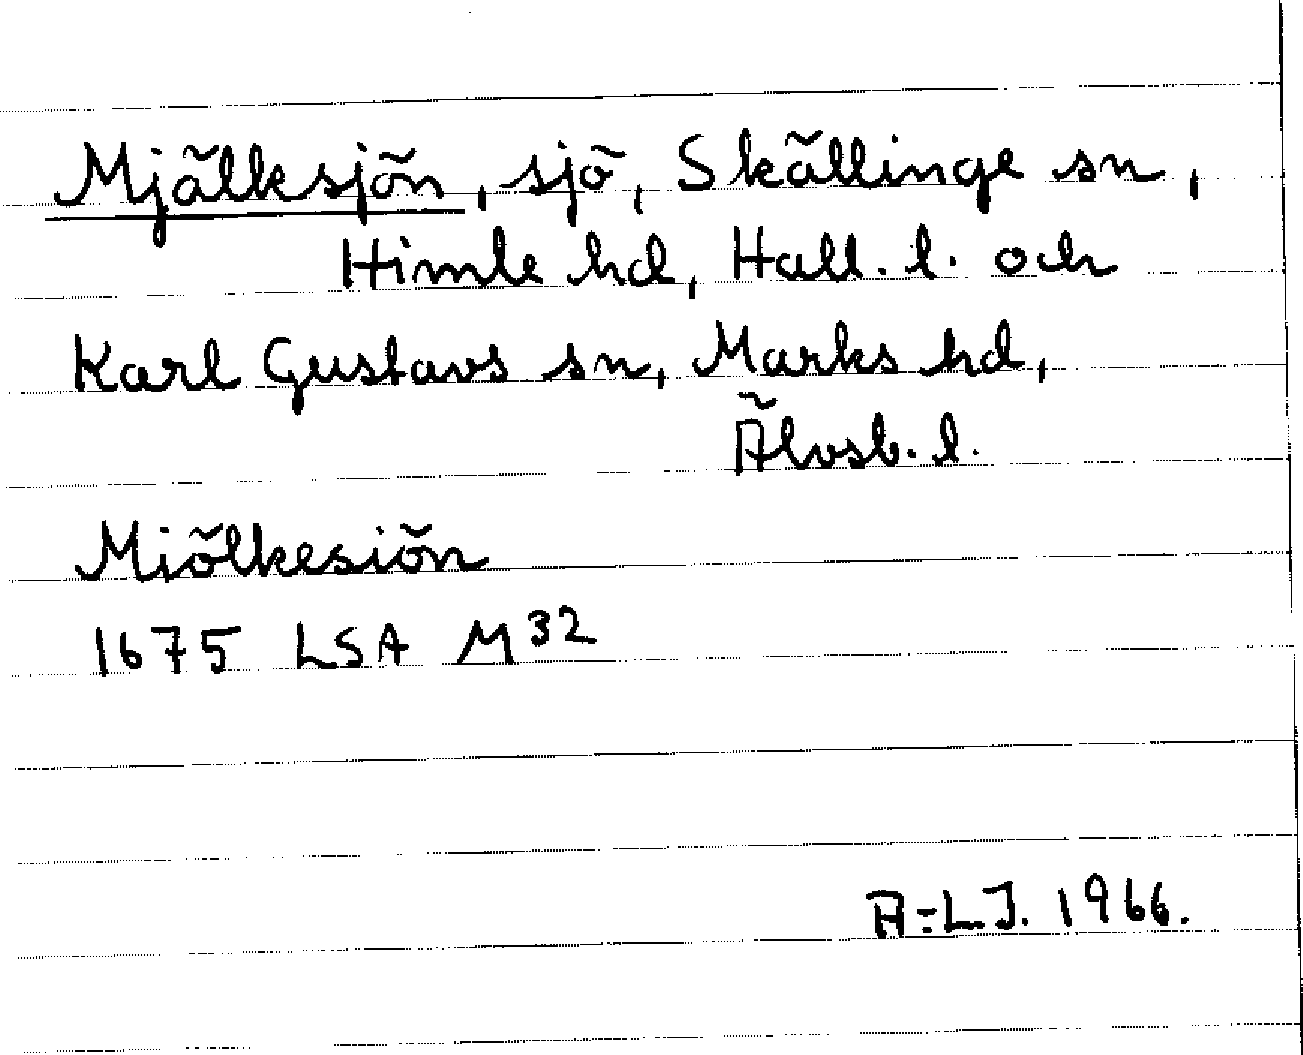 Mjälksjön, sjö, Skällinge sn,
Himle hd, Hall. l. och
Karl Gustavs sn, Marks hd,
Älvsb. l.
Miölkesiön
1675 LSA M32
A-L.J. 1966.